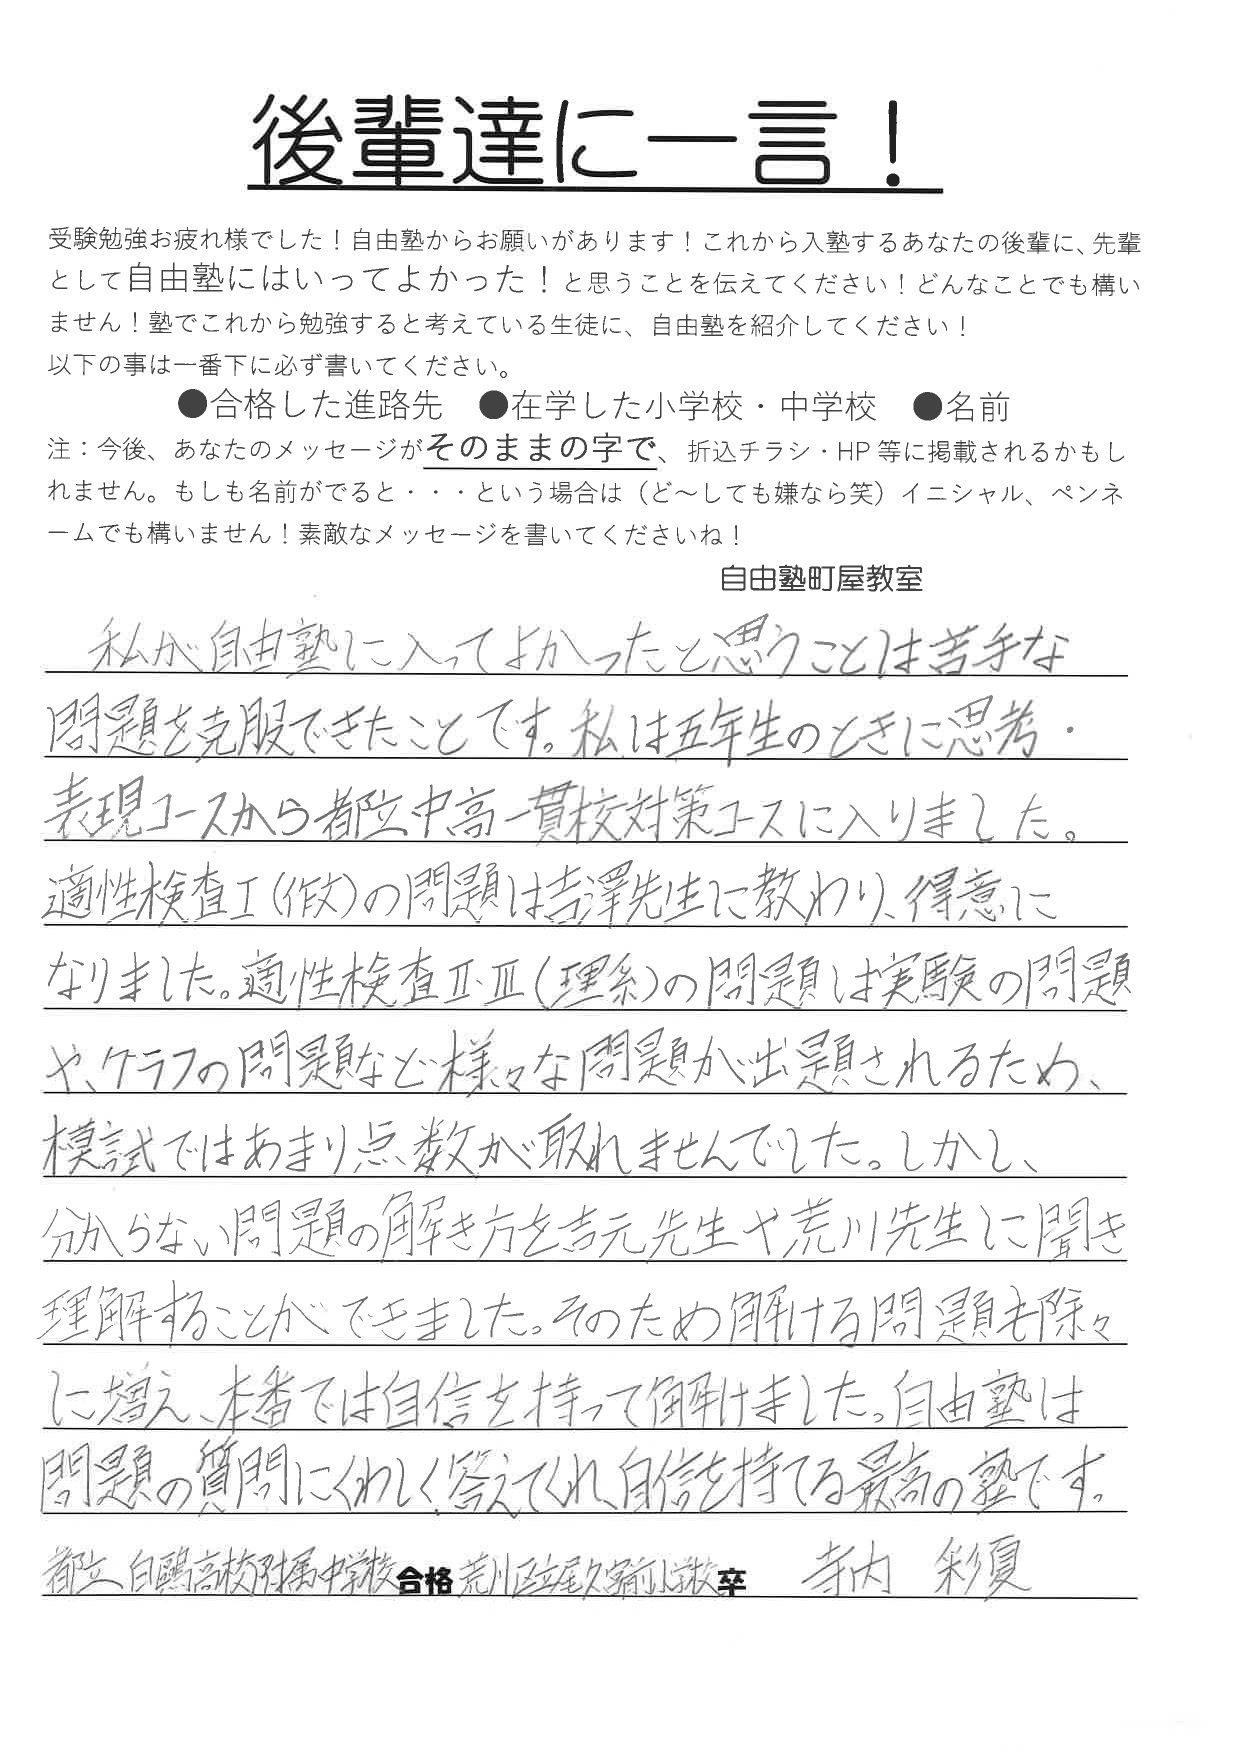 後輩達に一言！
受験勉強お疲れ様でした！自由塾からお願いがあります！これから入塾するあなたの後輩に、先輩
として自由塾にはいってよかった！と思うことを伝えてください！どんなことでも構い
ません！塾でこれから勉強すると考えている生徒に、自由塾を紹介してください！
以下の事は一番下に必ず書いてください。
●合格した進路先　●在学した小学校・中学校　●名前
注：今後、あなたのメッセージがそのままの字で、折込チラシ・HP等に掲載されるかもし
れません。もしも名前がでると・・・という場合は（ど～しても嫌なら笑）イニシャル、ペンネ
ームでも構いません！素敵なメッセージを書いてくださいね！
自由塾町屋教室
私が自由塾に入ってよかったと思うことは苦手な
問題を克服できたことです。私は五年生のときに思考・
表現コースから都立中高一貫校対策コースに入りました。
適性検査Ⅰ(作文)の問題は吉澤先生に教わり、得意に
なりました。適性検査Ⅱ・Ⅲ(理系)の問題は実験の問題
や、グラフの問題など様々な問題が出題されるため、
模試ではあまり点数が取れませんでした。しかし、
分からない問題の解き方を吉元先生や荒川先生に聞き
理解することができました。そのため解ける問題も除々
に増え、本番では自信を持って解けました。自由塾は
問題の質問にくわしく答えてくれ、自信を持てる最高の塾です。
都立白鷗高校附属中学校合格 荒川区立尾久宮前小学校卒　寺内　彩夏